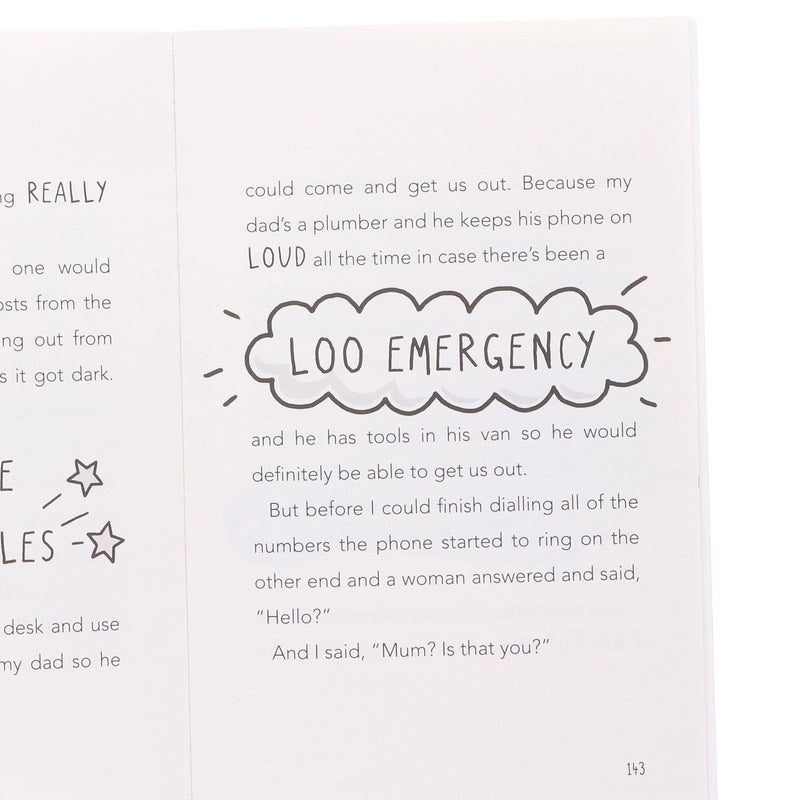 REALLY
one would
from the
out from
it got dark.
desk and use
my dad so he
could come and get us out. Because my
dad's a plumber and he keeps his phone on
LOUD all the time in case there's been a
LOO EMERGENCY
and he has tools in his van so he would
definitely be able to get us out.
But before I could finish dialling all of the
numbers the phone started to ring on the
other end and a woman answered and said,
“Hello?”
And I said, “Mum? Is that you?”
143